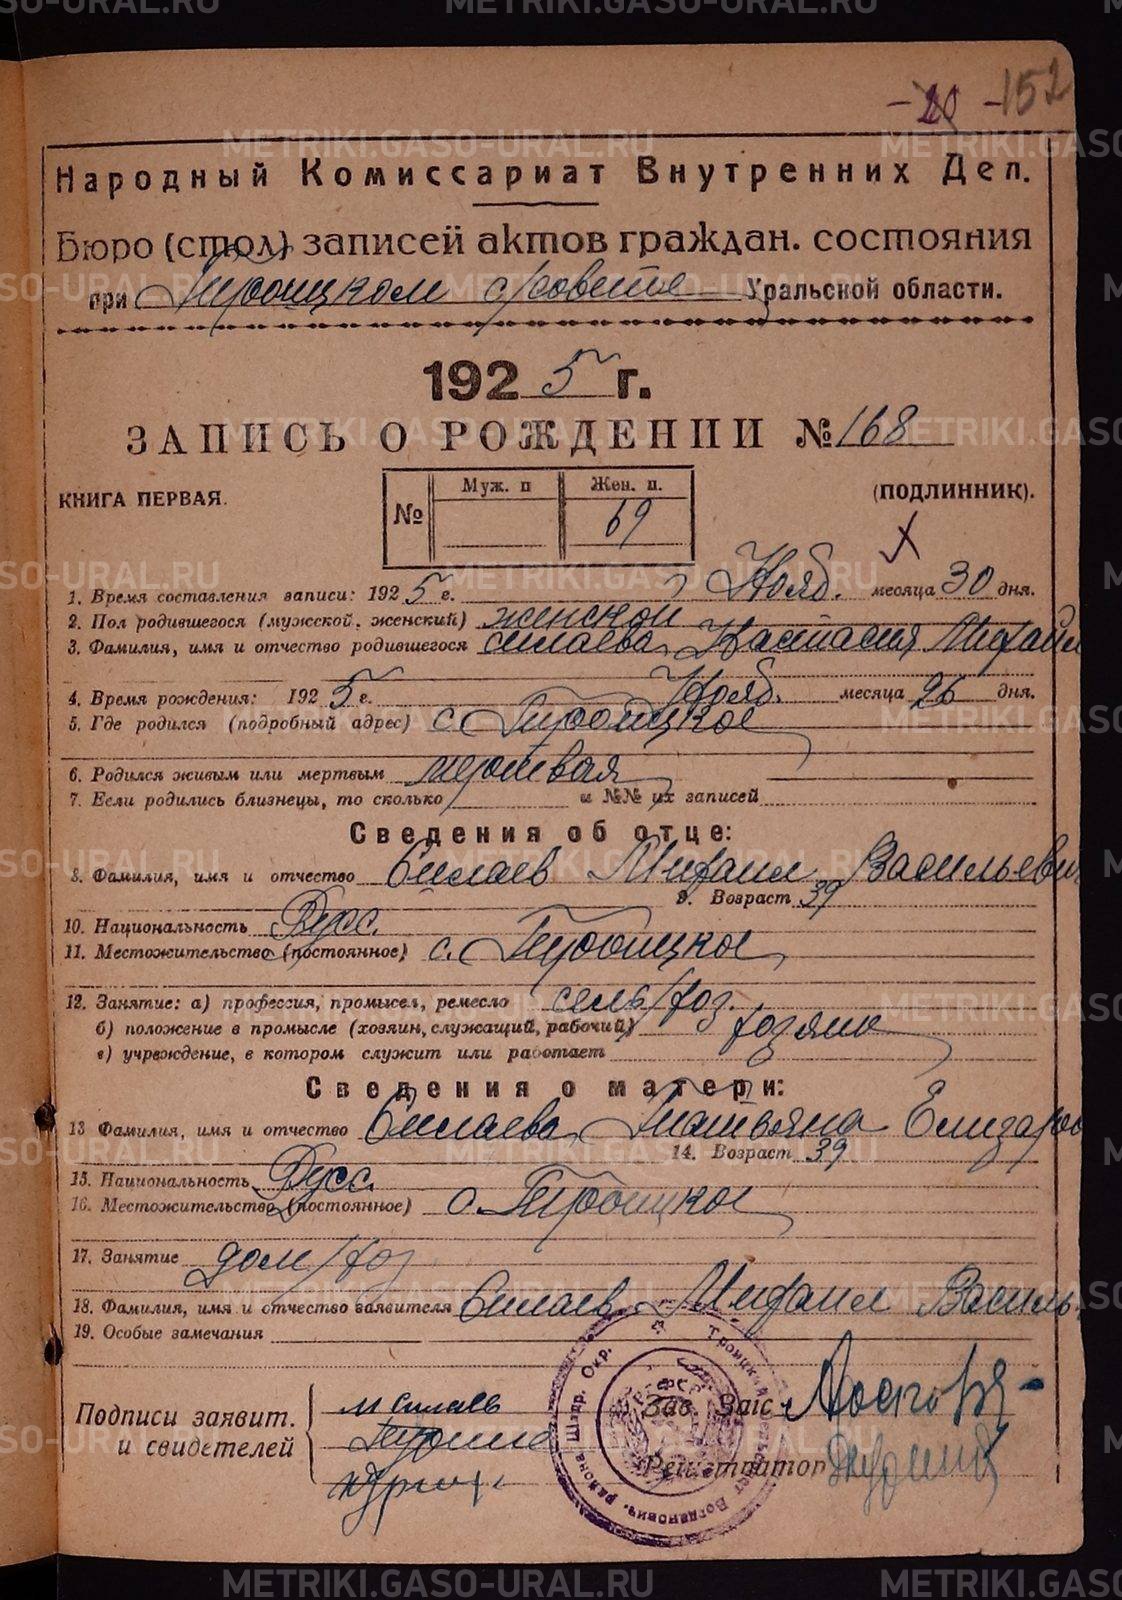 152
Народный Комиссариат Внутренних Дел.
Бюро (стол) записей актов граждан. состояния
при Троицком с/совете Уральской области.
1925 г.
ЗАПИСЬ О РОЖДЕНИИ № 168
КНИГА ПЕРВАЯ. № Муж. п Жен. п. 69 (ПОДЛИННИК).
1. Время составления записи: 1925 г. Нояб. месяца 30 дня.
2. Пол родившегося (мужской, женский) женской
3. Фамилия, имя и отчество родившегося Силаева Настасия Михаил
4. Время рождения: 1925 г. Нояб. месяца 26 дня.
5. Где родился (подробный адрес) с. Троицкое
6. Родился живым или мертвым
7. Если родились близнецы, то сколько и №№ их записей
Сведения об отце:
8. Фамилия, имя и отчество Силаев Михаил Васильевич
9. Возраст 39
10. Национальность Русс.
11. Местожительство (постоянное) с. Троицкое
12. Занятие: а) профессия, промысел, ремесло сель/хоз.
б) положение в промысле (хозяин, служащий, рабочий) хозяин
в) учреждение, в котором служит или работает
Сведения о матери:
13 Фамилия, имя и отчество Силаева Татьяна Елизаров
14. Возраст 39
15. Национальность Русс.
16. Местожительство (постоянное) с. Троицкое
17. Занятие дом/хоз
18. Фамилия, имя и отчество заявителя Силаев Михаил Василь.
19. Особые замечания
Подписи заявит. и свидетелей
м силаев
Зав. Загс
Регистратор
METRIKI.GASO-URAL.RU